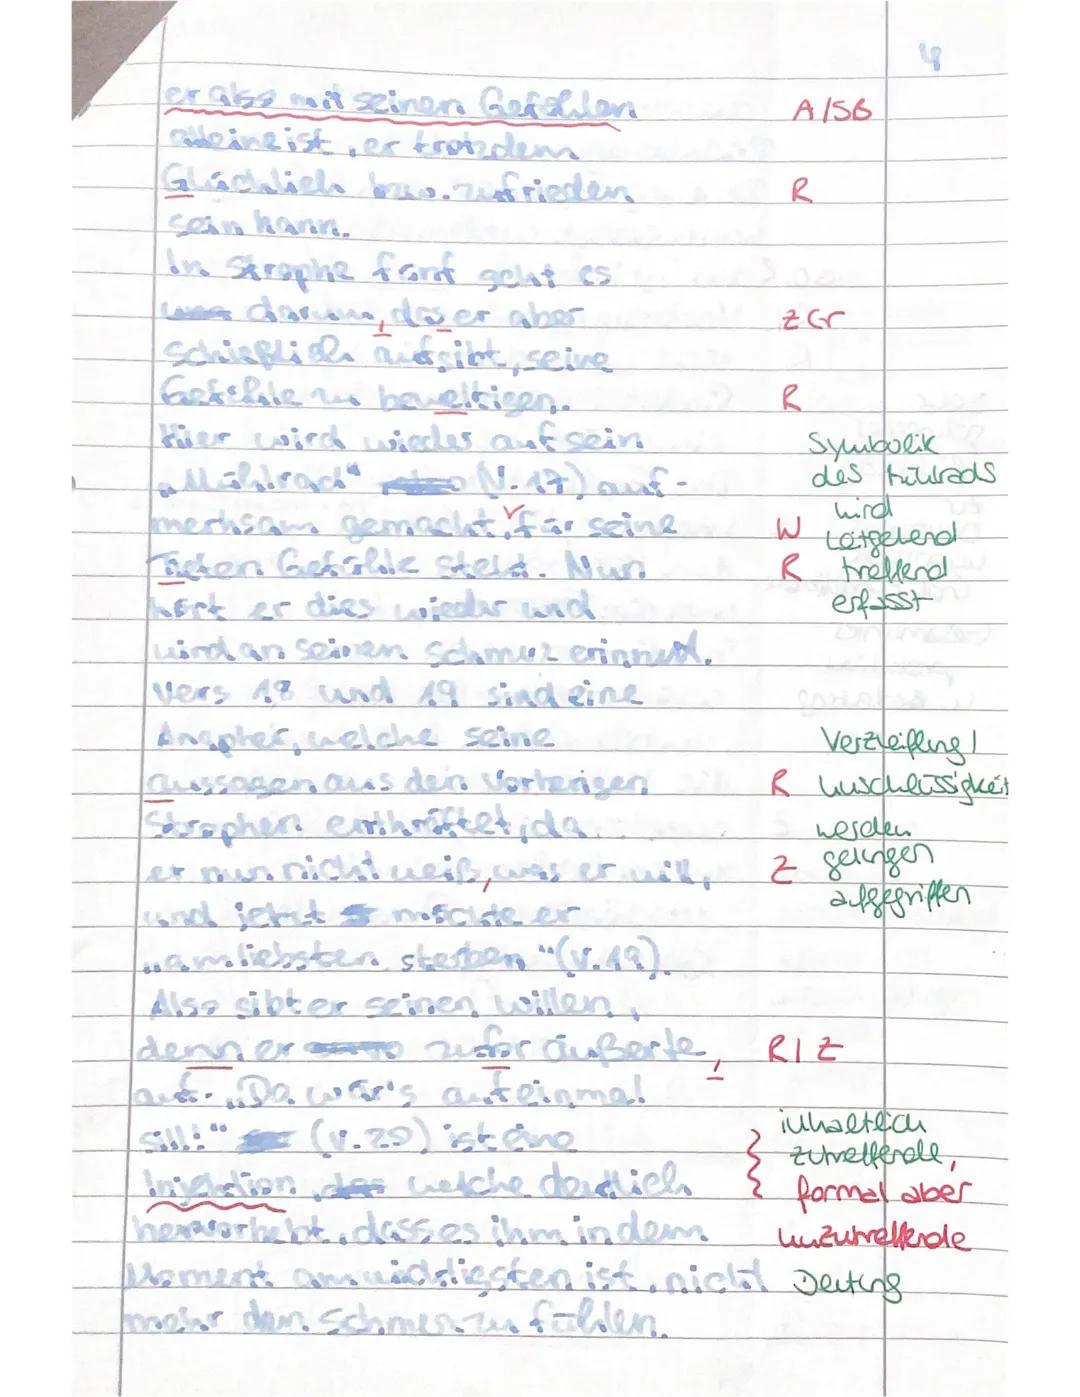 4
er also mit seinen Gefühlen A/SB
alleine ist, er trotzdem
Glücklich bzw. zufrieden R
sein kann.
In Strophe fünf geht es
darum, das er aber Z Gr
schießlich aufgibt, seine
Gefühle zu beweltigen. R
Hier wird wieder auf sein Symbolik
„Mühlrad“ (V. 17) auf- des Mühlrads
wird
merksam gemacht, für seine W weitgehend
Tiefen Gefühle steht. Nun R treffend
hört er dies wieder und erfasst
wird an seinen Schmerz erinnert.
Vers 18 und 19 sind eine
Anapher, welche seine Verzweiflung /
aussagen aus den Vorherigen R Unschlüssigkeit
Strophen entkräftet, da werden
er nun nicht weiß, was er will, Z gelungen
und jetzt möchte er aufgegriffen
„am liebsten sterben“ (V. 19).
Also gibt er seinen willen,
denn er zufor äußerte, R/Z
auf. „Da wär's auf einmal
still!“ (V. 20) ist eine inhaltlich
zutreffende,
Injektion welche deutlich formal aber
hervorhebt, dass es ihm in dem unzutreffende
Moment am widdigsten ist, nicht Deutung
mehr den Schmerz zu fühlen.